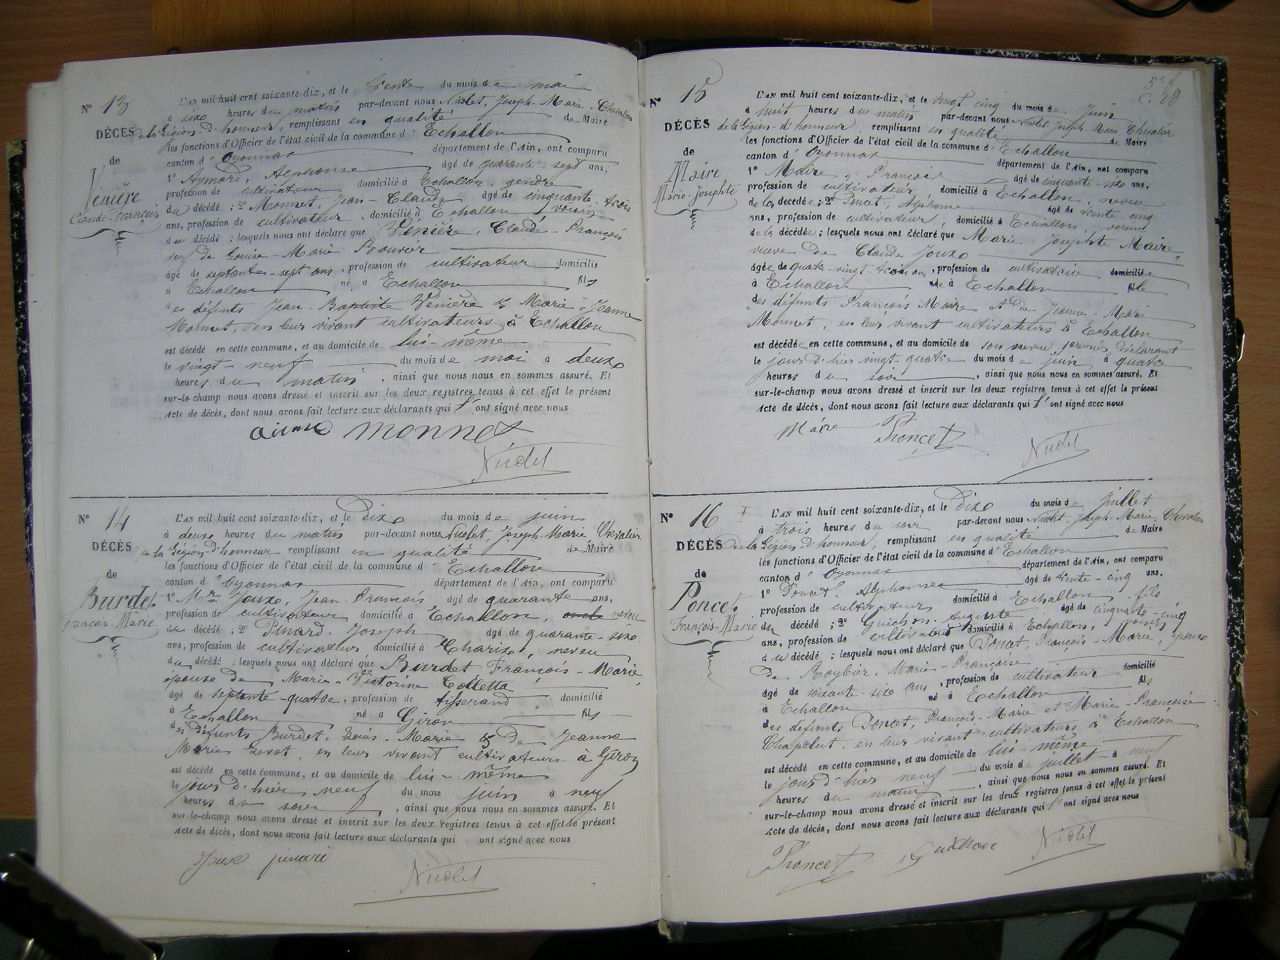 N° 13
DÉCÈS
de
Vénière
Claude-François
L'AN mil huit cent soixante-dix, et le trente du mois de mai
à dix heures du matin par-devant nous Nicolet, Joseph-Marie, Chevalier
de la Légion d'honneur, remplissant en qualité de Maire
les fonctions d'Officier de l'état civil de la commune d'Echallon
canton d'Oyonnax département de l'Ain, ont comparu
1° Aymard, Alphonse âgé de quarante-sept ans,
profession de cultivateur domicilié à Echallon, gendre
du décédé ; 2° Monnet, Jean-Claude âgé de cinquante-trois
ans, profession de cultivateur, domicilié à Echallon, voisin
du décédé ; lesquels nous ont déclaré que Vénière, Claude-François
veuf de Louise-Marie Bouvier
âgé de septante-sept ans, profession de cultivateur domicilié
à Echallon né à Echallon fils
des défunts Jean-Baptiste Vénière & Marie-Jeanne
Monnet, en leur vivant cultivateurs à Echallon
est décédé en cette commune, et au domicile de lui-même
le vingt-neuf du mois de mai à deux
heures du matin, ainsi que nous nous en sommes assuré. Et
sur-le-champ nous avons dressé et inscrit sur les deux registres tenus à cet effet le présent
acte de décès, dont nous avons fait lecture aux déclarants qui l'ont signé avec nous
monnet
Nicolet
N° 14
DÉCÈS
de
Burdet
François-Marie
L'AN mil huit cent soixante-dix, et le dix du mois de juin
à deux heures du matin par-devant nous Nicolet, Joseph-Marie Chevalier
de la Légion d'honneur remplissant en qualité de Maire
les fonctions d'Officier de l'état civil de la commune d'Echallon
canton d'Oyonnax département de l'Ain, ont comparu
1° Joux, Jean-François âgé de quarante ans,
profession de cultivateur domicilié à Echallon, neveu
du décédé ; 2° Pinard, Joseph âgé de quarante-six
ans, profession de cultivateur domicilié à Charix, neveu
du décédé ; lesquels nous ont déclaré que Burdet François-Marie,
époux de Marie-Victorine Colletta
âgé de septante-quatre, profession de tisserand domicilié
à Echallon né à Giron fils
des défunts Burdet, Louis-Marie & de Jeanne
Marie en leur vivant cultivateurs à Giron
est décédé en cette commune, et au domicile de lui-même
le jour d'hier neuf du mois juin à neuf
heures du soir, ainsi que nous nous en sommes assuré. Et
sur-le-champ nous avons dressé et inscrit sur les deux registres tenus à cet effet le présent
acte de décès, dont nous avons fait lecture aux déclarants qui ont signé avec nous
Joux pinard
Nicolet
N° 15
DÉCÈS
de
Maire
Marie-Josephte
L'AN mil huit cent soixante-dix, et le vingt cinq du mois de juin
à huit heures du matin par-devant nous Nicolet Joseph Marie Chevalier
de la Légion-d'honneur, remplissant en qualité de Maire
les fonctions d'Officier de l'état civil de la commune d'Echallon
canton d'Oyonnax département de l'Ain, ont comparu
1° Maire, François âgé de cinquante-six ans,
profession de cultivateur, domicilié à Echallon, neveu
de la décédée ; 2° Poncet, Alphonse âgé de vente cinq
ans, profession de cultivateur, domicilié à Echallon,
de la décédée ; lesquels nous ont déclaré que Marie-Josephte Maire,
veuve de Claude Joux
âgée de quatre-vingt trois ans, profession de cultivatrice domiciliée
à Echallon née à Echallon fille
des défunts François Maire et de Jeanne-Marie
Monnet, en leur vivant cultivateurs à Echallon
est décédée en cette commune, et au domicile de son neveu, premier déclarant
le jour d'hier vingt quatre du mois de juin à quatre
heures du soir, ainsi que nous nous en sommes assuré. Et
sur-le-champ nous avons dressé et inscrit sur les deux registres tenus à cet effet le présent
acte de décès, dont nous avons fait lecture aux déclarants qui l'ont signé avec nous
Maire Poncet
Nicolet
N° 16
DÉCÈS
de
Poncet
François-Marie
L'AN mil huit cent soixante-dix, et le dix du mois de juillet
à trois heures du soir par-devant nous Nicolet, Joseph-Marie, Chevalier
de la Légion d'honneur, remplissant en qualité de Maire
les fonctions d'Officier de l'état civil de la commune d'Echallon
canton d'Oyonnax département de l'Ain, ont comparu
1° Poncet, Alphonse âgé de trente-cinq ans,
profession de cultivateur domicilié à Echallon, fils
du décédé ; 2° Auguste âgé de cinquante-cinq
ans, profession de cultivateur domicilié à Echallon,
du décédé ; lesquels nous ont déclaré que Poncet, François-Marie, époux
de Marie-Françoise
âgé de soixante-six ans, profession de cultivateur domicilié
à Echallon né à Echallon fils
des défunts Poncet, François-Marie et Marie-Françoise
Chapelut, en leur vivant cultivateurs à Echallon
est décédé en cette commune, et au domicile de lui-même
le jour d'hier neuf du mois de juillet à neuf
heures du matin, ainsi que nous nous en sommes assuré. Et
sur-le-champ nous avons dressé et inscrit sur les deux registres tenus à cet effet le présent
acte de décès, dont nous avons fait lecture aux déclarants qui l'ont signé avec nous
Poncet
Nicolet